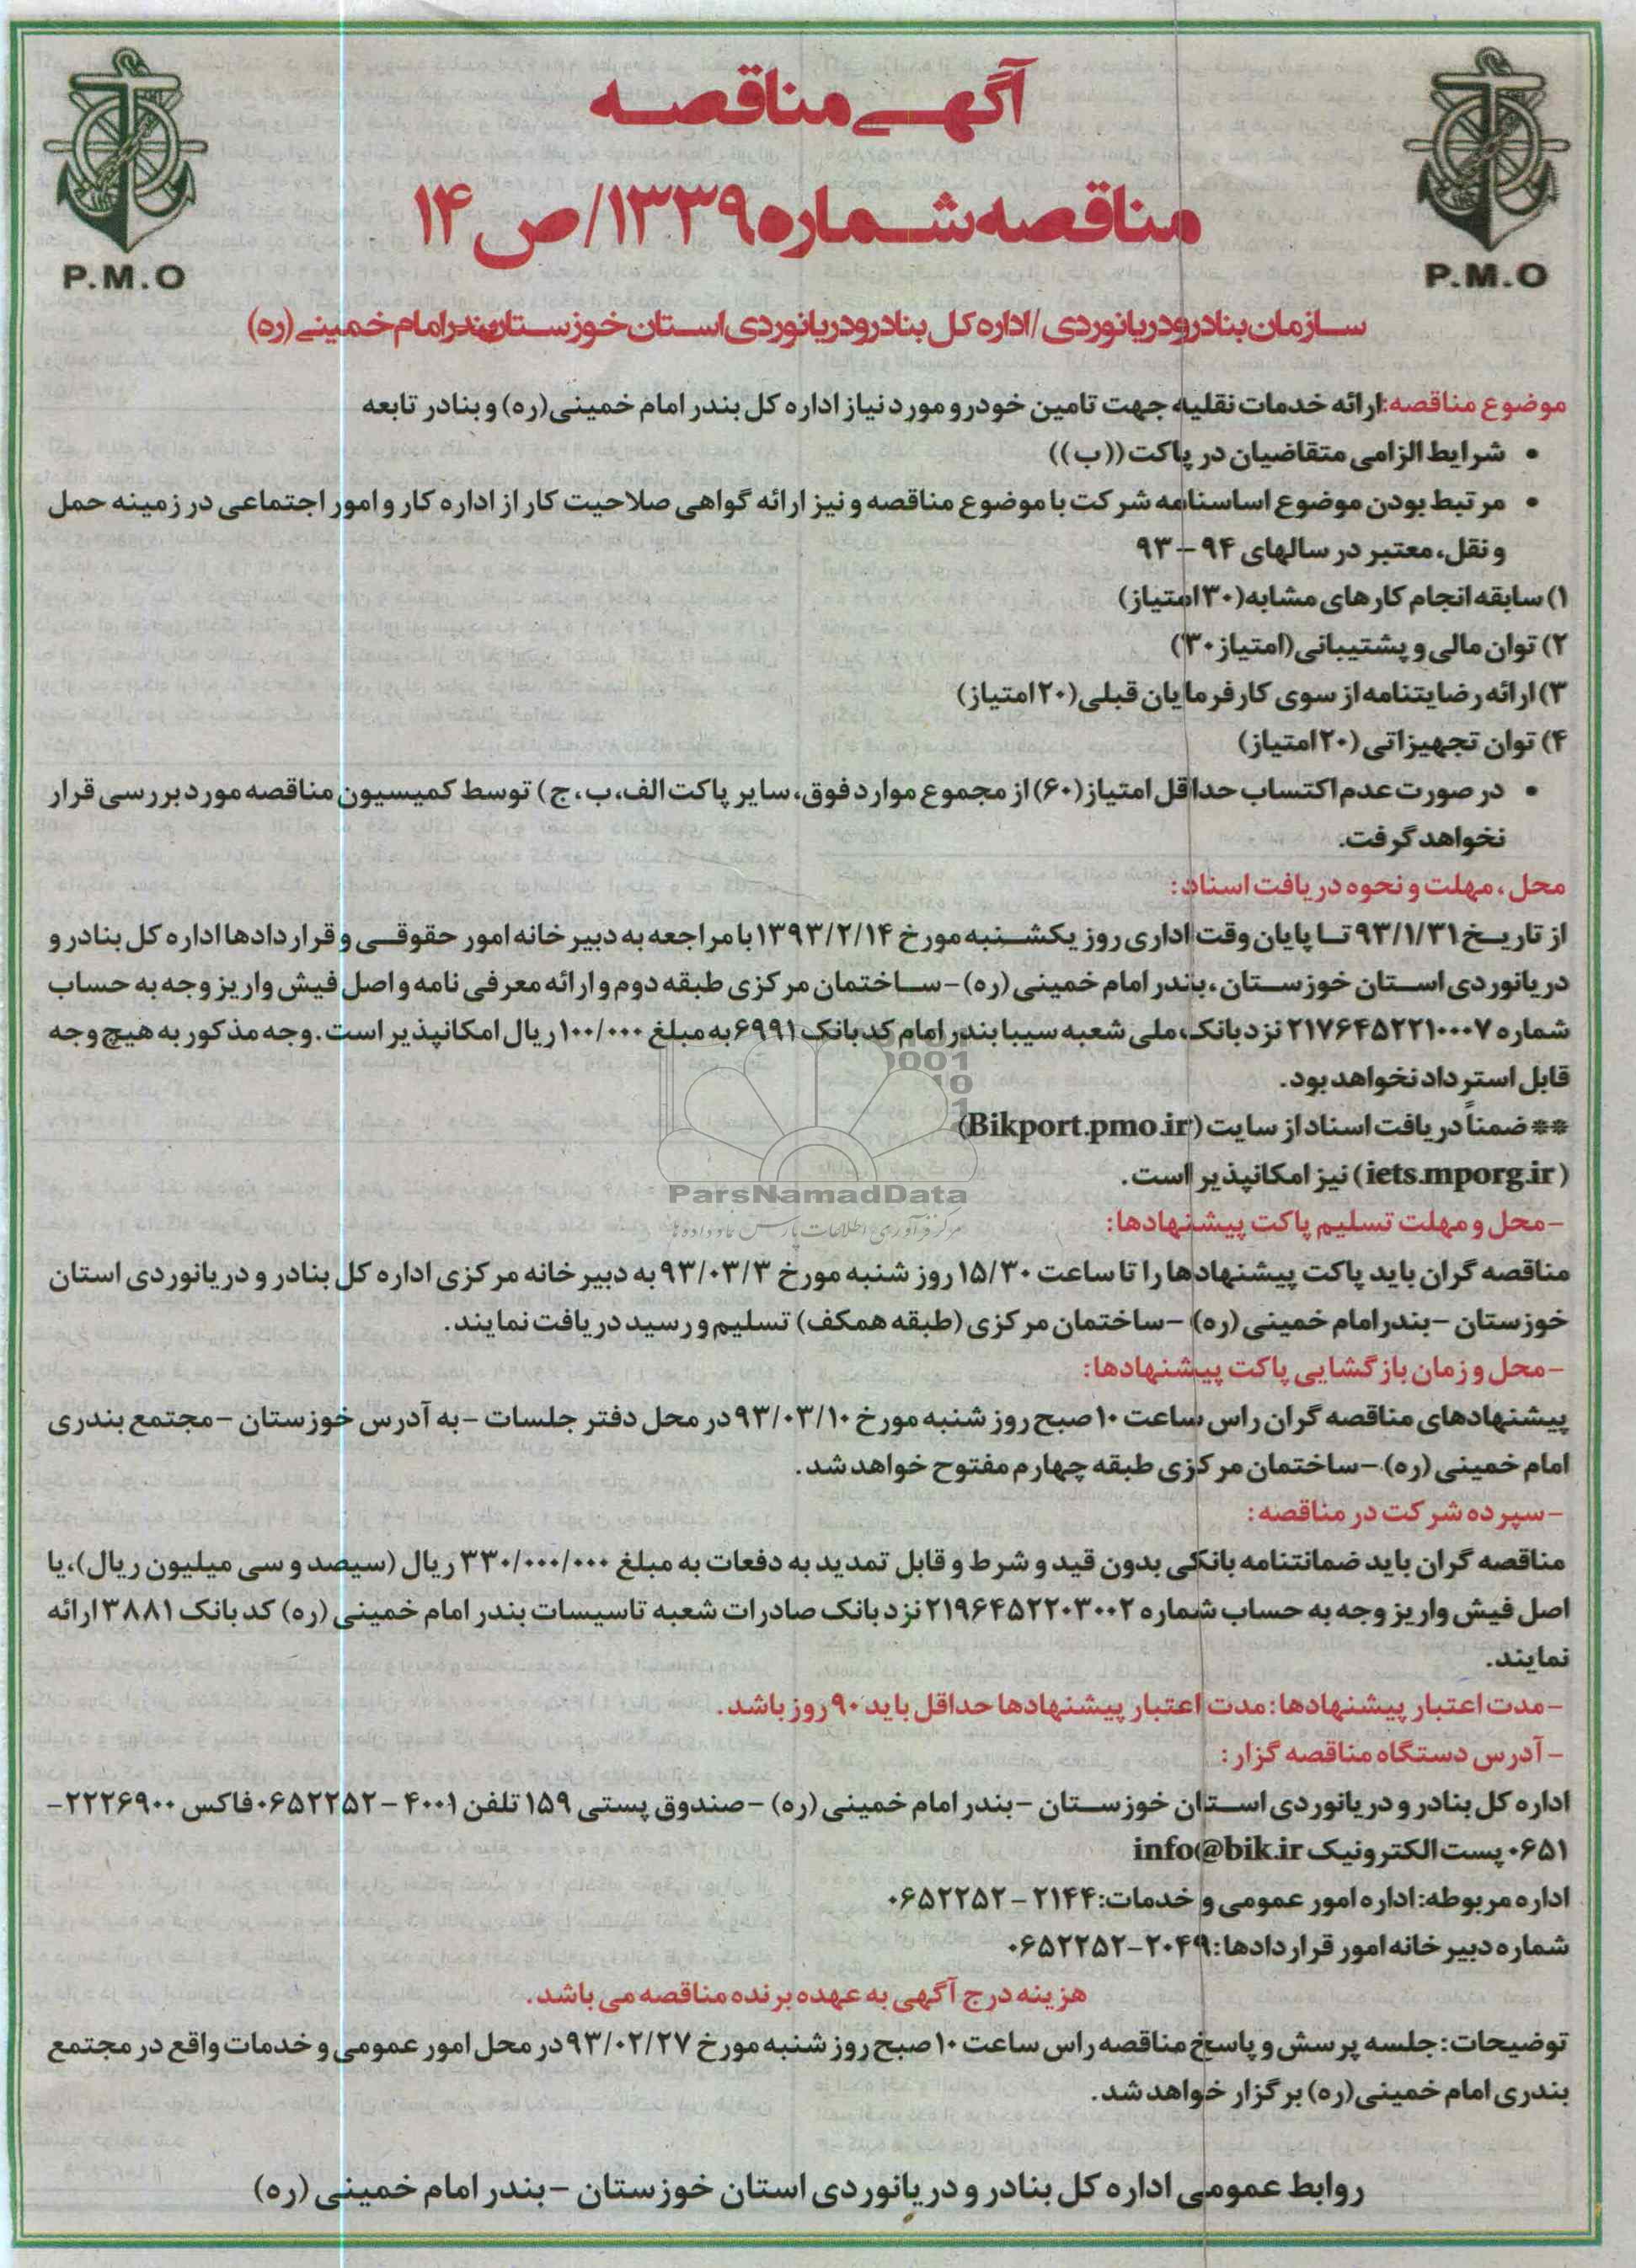 آگهی مناقصه
مناقصه شماره ۱۳۳۹/ص ۱۴
P.M.O
P.M.O
سازمان بنادر و دریانوردی/اداره کل بنادر و دریانوردی استان خوزستان بندر امام خمینی (ره)
موضوع مناقصه: ارائه خدمات نقلیه جهت تامین خودرو مورد نیاز اداره کل بندر امام خمینی (ره) و بنادر تابعه
• شرایط الزامی متقاضیان در پاکت ((ب))
• مرتبط بودن موضوع اساسنامه شرکت با موضوع مناقصه و نیز ارائه گواهی صلاحیت کار از اداره کار و امور اجتماعی در زمینه حمل
و نقل، معتبر در سالهای ۹۴ – ۹۳
۱) سابقه انجام کارهای مشابه (۳۰ امتیاز)
۲) توان مالی و پشتیبانی (امتیاز ۳۰)
۳) ارائه رضایتنامه از سوی کارفرمایان قبلی (۲۰ امتیاز)
۴) توان تجهیزاتی (۲۰ امتیاز)
• در صورت عدم اکتساب حداقل امتیاز (۶۰) از مجموع موارد فوق، سایر پاکت الف، ب، ج) توسط کمیسیون مناقصه مورد بررسی قرار
نخواهد گرفت.
محل، مهلت و نحوه دریافت اسناد:
از تاریخ ۹۳/۱/۳۱ تا پایان وقت اداری روز یکشنبه مورخ ۱۳۹۳/۲/۱۴ با مراجعه به دبیرخانه امور حقوقی و قراردادها اداره کل بنادر و
دریانوردی استان خوزستان، بندر امام خمینی (ره) – ساختمان مرکزی طبقه دوم و ارائه معرفی نامه و اصل فیش واریز وجه به حساب
شماره ۲۱۷۶۴۵۲۲۱۰۰۰۷ نزد بانک ملی شعبه سیبا بندر امام کد بانک ۶۹۹۱ به مبلغ ۱۰۰/۰۰۰ ریال امکانپذیر است. وجه مذکور به هیچ وجه
قابل استرداد نخواهد بود.
** ضمناً دریافت اسناد از سایت (Bikport.pmo.ir)
(iets.mporg.ir) نیز امکانپذیر است.
ParsNamadData
مرکز فرآوری اطلاعات پارس نماد داده ها
– محل و مهلت تسلیم پاکت پیشنهادها:
مناقصه گران باید پاکت پیشنهادها را تا ساعت ۱۵/۳۰ روز شنبه مورخ ۹۳/۰۳/۳ به دبیرخانه مرکزی اداره کل بنادر و دریانوردی استان
خوزستان – بندر امام خمینی (ره) – ساختمان مرکزی (طبقه همکف) تسلیم و رسید دریافت نمایند.
– محل و زمان بازگشایی پاکت پیشنهادها:
پیشنهادهای مناقصه گران راس ساعت ۱۰ صبح روز شنبه مورخ ۹۳/۰۳/۱۰ در محل دفتر جلسات – به آدرس خوزستان – مجتمع بندری
امام خمینی (ره) – ساختمان مرکزی طبقه چهارم مفتوح خواهد شد.
– سپرده شرکت در مناقصه:
مناقصه گران باید ضمانتنامه بانکی بدون قید و شرط و قابل تمدید به دفعات به مبلغ ۳۳۰/۰۰۰/۰۰۰ ریال (سیصد و سی میلیون ریال)، یا
اصل فیش واریز وجه به حساب شماره ۲۱۹۶۴۵۲۲۰۳۰۰۲ نزد بانک صادرات شعبه تاسیسات بندر امام خمینی (ره) کد بانک ۳۸۸۱ ارائه
نمایند.
– مدت اعتبار پیشنهادها: مدت اعتبار پیشنهادها حداقل باید ۹۰ روز باشد.
– آدرس دستگاه مناقصه گزار:
اداره کل بنادر و دریانوردی استان خوزستان – بندر امام خمینی (ره) – صندوق پستی ۱۵۹ تلفن ۴۰۰۱ – ۰۶۵۲۲۵۲ فاکس ۲۲۲۶۹۰۰ –
۰۶۵۱ پست الکترونیک info@bik.ir
اداره مربوطه: اداره امور عمومی و خدمات: ۲۱۴۴ – ۰۶۵۲۲۵۲
شماره دبیرخانه امور قراردادها: ۲۰۴۹ – ۰۶۵۲۲۵۲
هزینه درج آگهی به عهده برنده مناقصه می باشد.
توضیحات: جلسه پرسش و پاسخ مناقصه راس ساعت ۱۰ صبح روز شنبه مورخ ۹۳/۰۲/۲۷ در محل امور عمومی و خدمات واقع در مجتمع
بندری امام خمینی (ره) برگزار خواهد شد.
روابط عمومی اداره کل بنادر و دریانوردی استان خوزستان – بندر امام خمینی (ره)